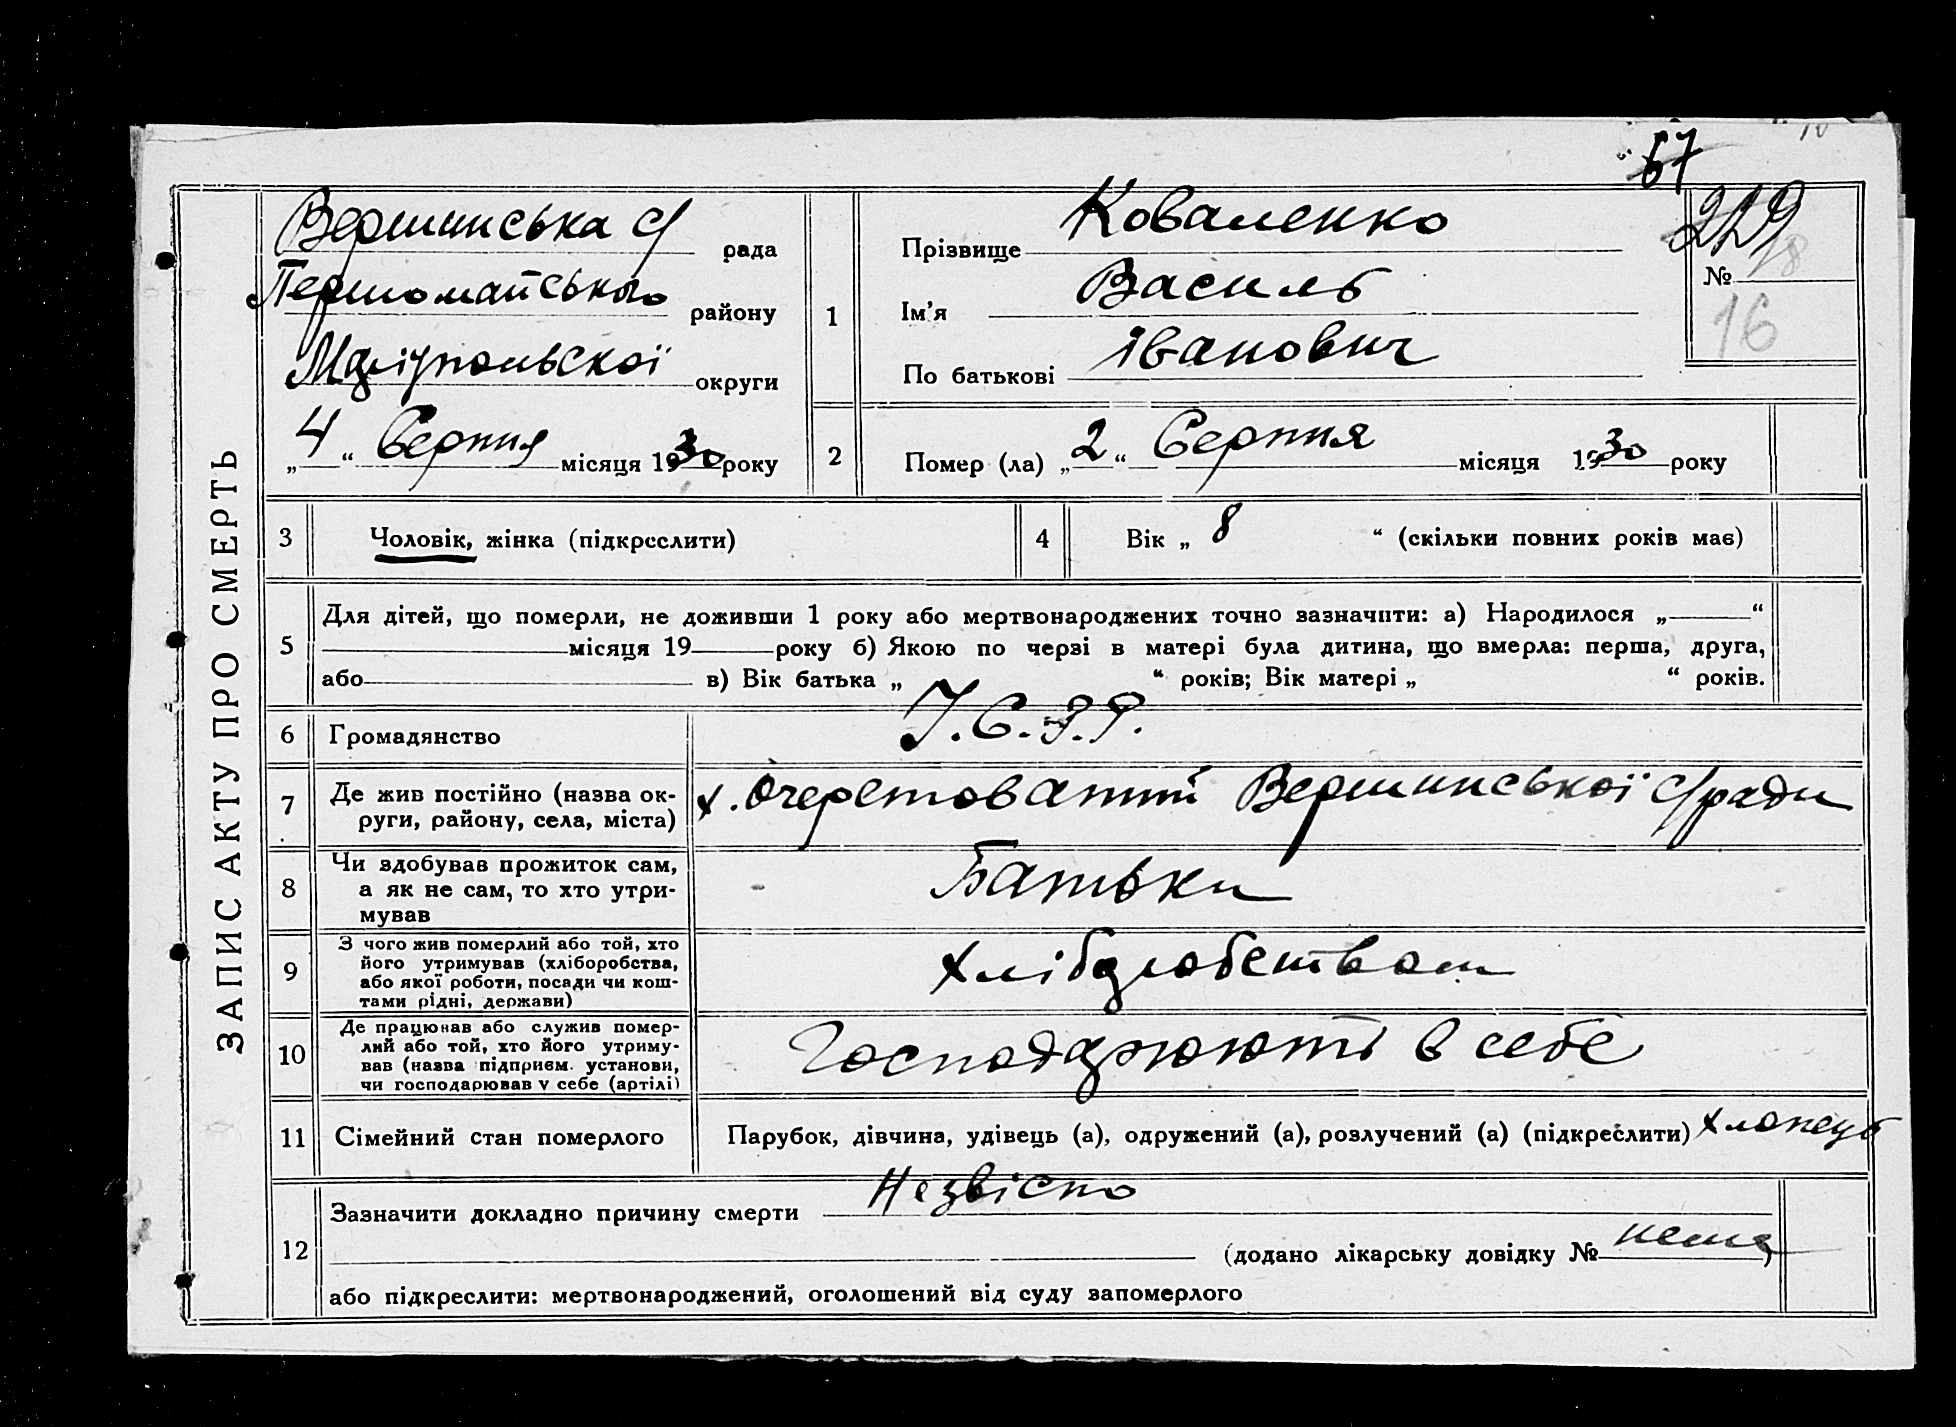 67
229
18
16
ЗАПИС АКТУ ПРО СМЕРТЬ
Вершинська с/ рада
Першомайського району
Маріупольскої округи
„4“ Серпня місяця 1930 року
1
Прізвище Коваленко
Ім'я Василь
По батькові Іванович
№
2
Помер (ла) „2“ Серпня місяця 1930 року
3 Чоловік, жінка (підкреслити)
4 Вік „ 8 “ (скільки повних років має)
5
Для дітей, що померли, не доживши 1 року або мертвонароджених точно зазначити: а) Народилося „ “
місяця 19 року б) Якою по черзі в матері була дитина, що вмерла: перша, друга,
або в) Вік батька „ “ років; Вік матері „ “ років.
6 Громадянство У.С.Р.Р.
7
Де жив постійно (назва ок-
руги, району, села, міста)
х. Очеретоватий Вершинської с/ради
8
Чи здобував прожиток сам,
а як не сам, то хто утри-
мував
Батьки
9
З чого жив померлий або той, хто
його утримував (хліборобства,
або якої роботи, посади чи кош-
тами рідні, держави)
Хліборобством
10
Де працював або служив помер-
лий або той, хто його утриму-
вав (назва підприєм. установи,
чи господарював у себе (артілі)
Господарюють в себе
11 Сімейний стан померлого
Парубок, дівчина, удівець (а), одружений (а), розлучений (а) (підкреслити) Хлопець
12
Зазначити докладно причину смерти Незвісно
(додано лікарську довідку № нема)
або підкреслити: мертвонароджений, оголошений від суду запомерлого